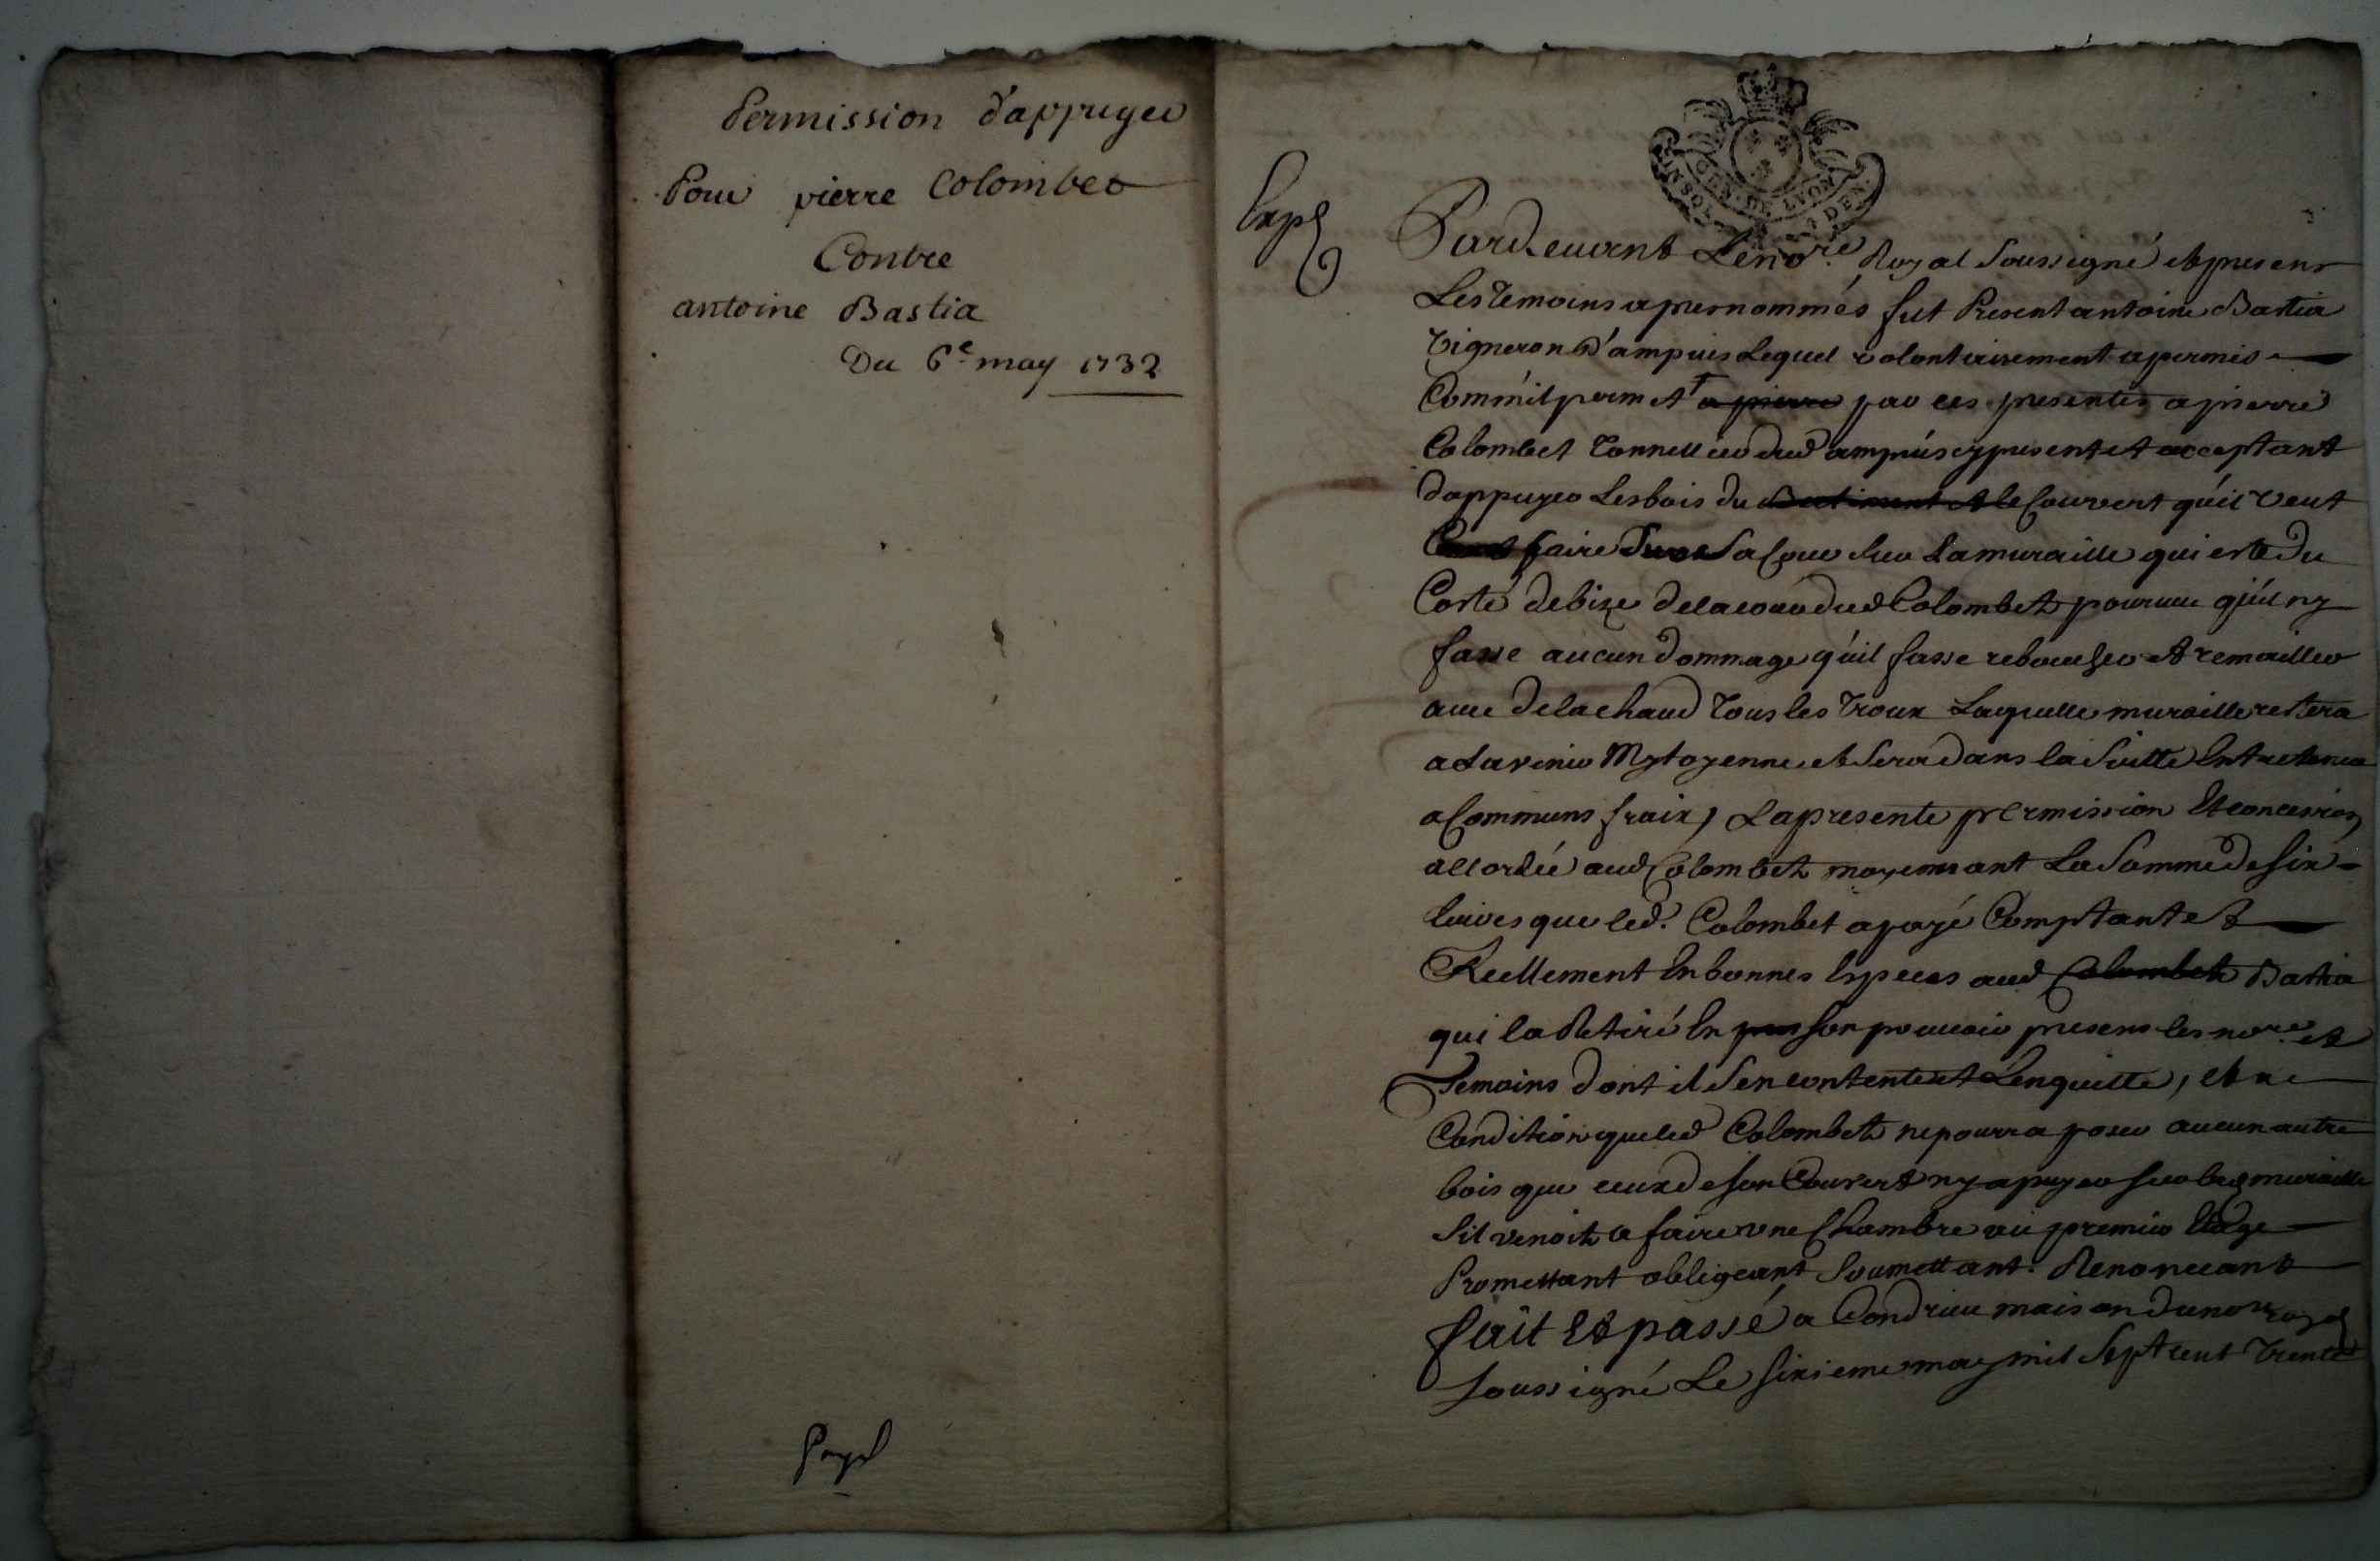 Permission d'appuyer
Pour pierre Colombet
Contre
antoine Bastia
Du 6e may 1732
Payé
Expé
GEN. DE LYON
UN SOL DEN.
Pardeuant Le nore Royal Soussigné et presens
Les Temoins apres nommés fut Present antoine Bastia
Vigneron D'ampuis Lequel volontairement a permis
Comm'il permet a pierre par ces presentes a pierre
Colombet Tonnellier dud ampuis cy present et acceptant
d'appuyer Les bois du Batiment et le Couvert qu'il veut
faire Sur Sa Cour Sur La muraille qui est du
Costé de bize de la cour dud Colombet pourueu qu'il ny
fasse aucun dommage qu'il fasse reboucher et remailler
auec de la chaud Tous les Troux Laquelle muraille restera
a Lavenir Mytoyenne et Sera dans la Suitte Entretenue
a Communs fraix, La presente permission Et concession
accordée aud Colombet moyennant La Somme de Six
livres que led. Colombet a payé Comptant et
Reellement En bonnes Especes aud Colombet Bastia
qui la Retiré En son pouuoir presens les nore et
Temoins dont il S'en contente et L'en quitte, et a
Condition que led Colombet ne pourra poser aucun autre
bois que ceux de son Couvert ny apuyer sur lad muraille
Sil venoit a faire une Chambre au premier Etage
Promettant obligeant Soumettant. Renoncant
fait Et passé a Condrieu maison du nore royal
soussigné Le Sixieme may mil Sept cent Trente